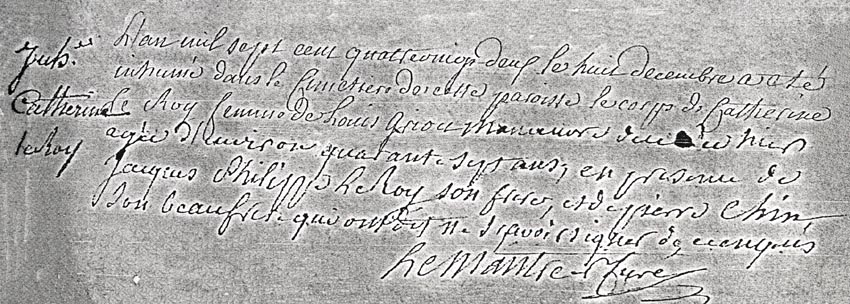 Inh.on
Catherine
le Roy
L'an mil sept cent quatrevingt deux le huit decembre a eté
inhumé dans le Cimetiere de cette paroisse le corps de Catherine
le Roy femme de Louis Giou manoeuvre
agée d'environ quarante sept ans, en presence de
Jacques Philippe Le Roy son frere, et de pierre Chin
son beaufrere qui ont dit ne sçavoir signer de ce enquis
Lemaitre Curé